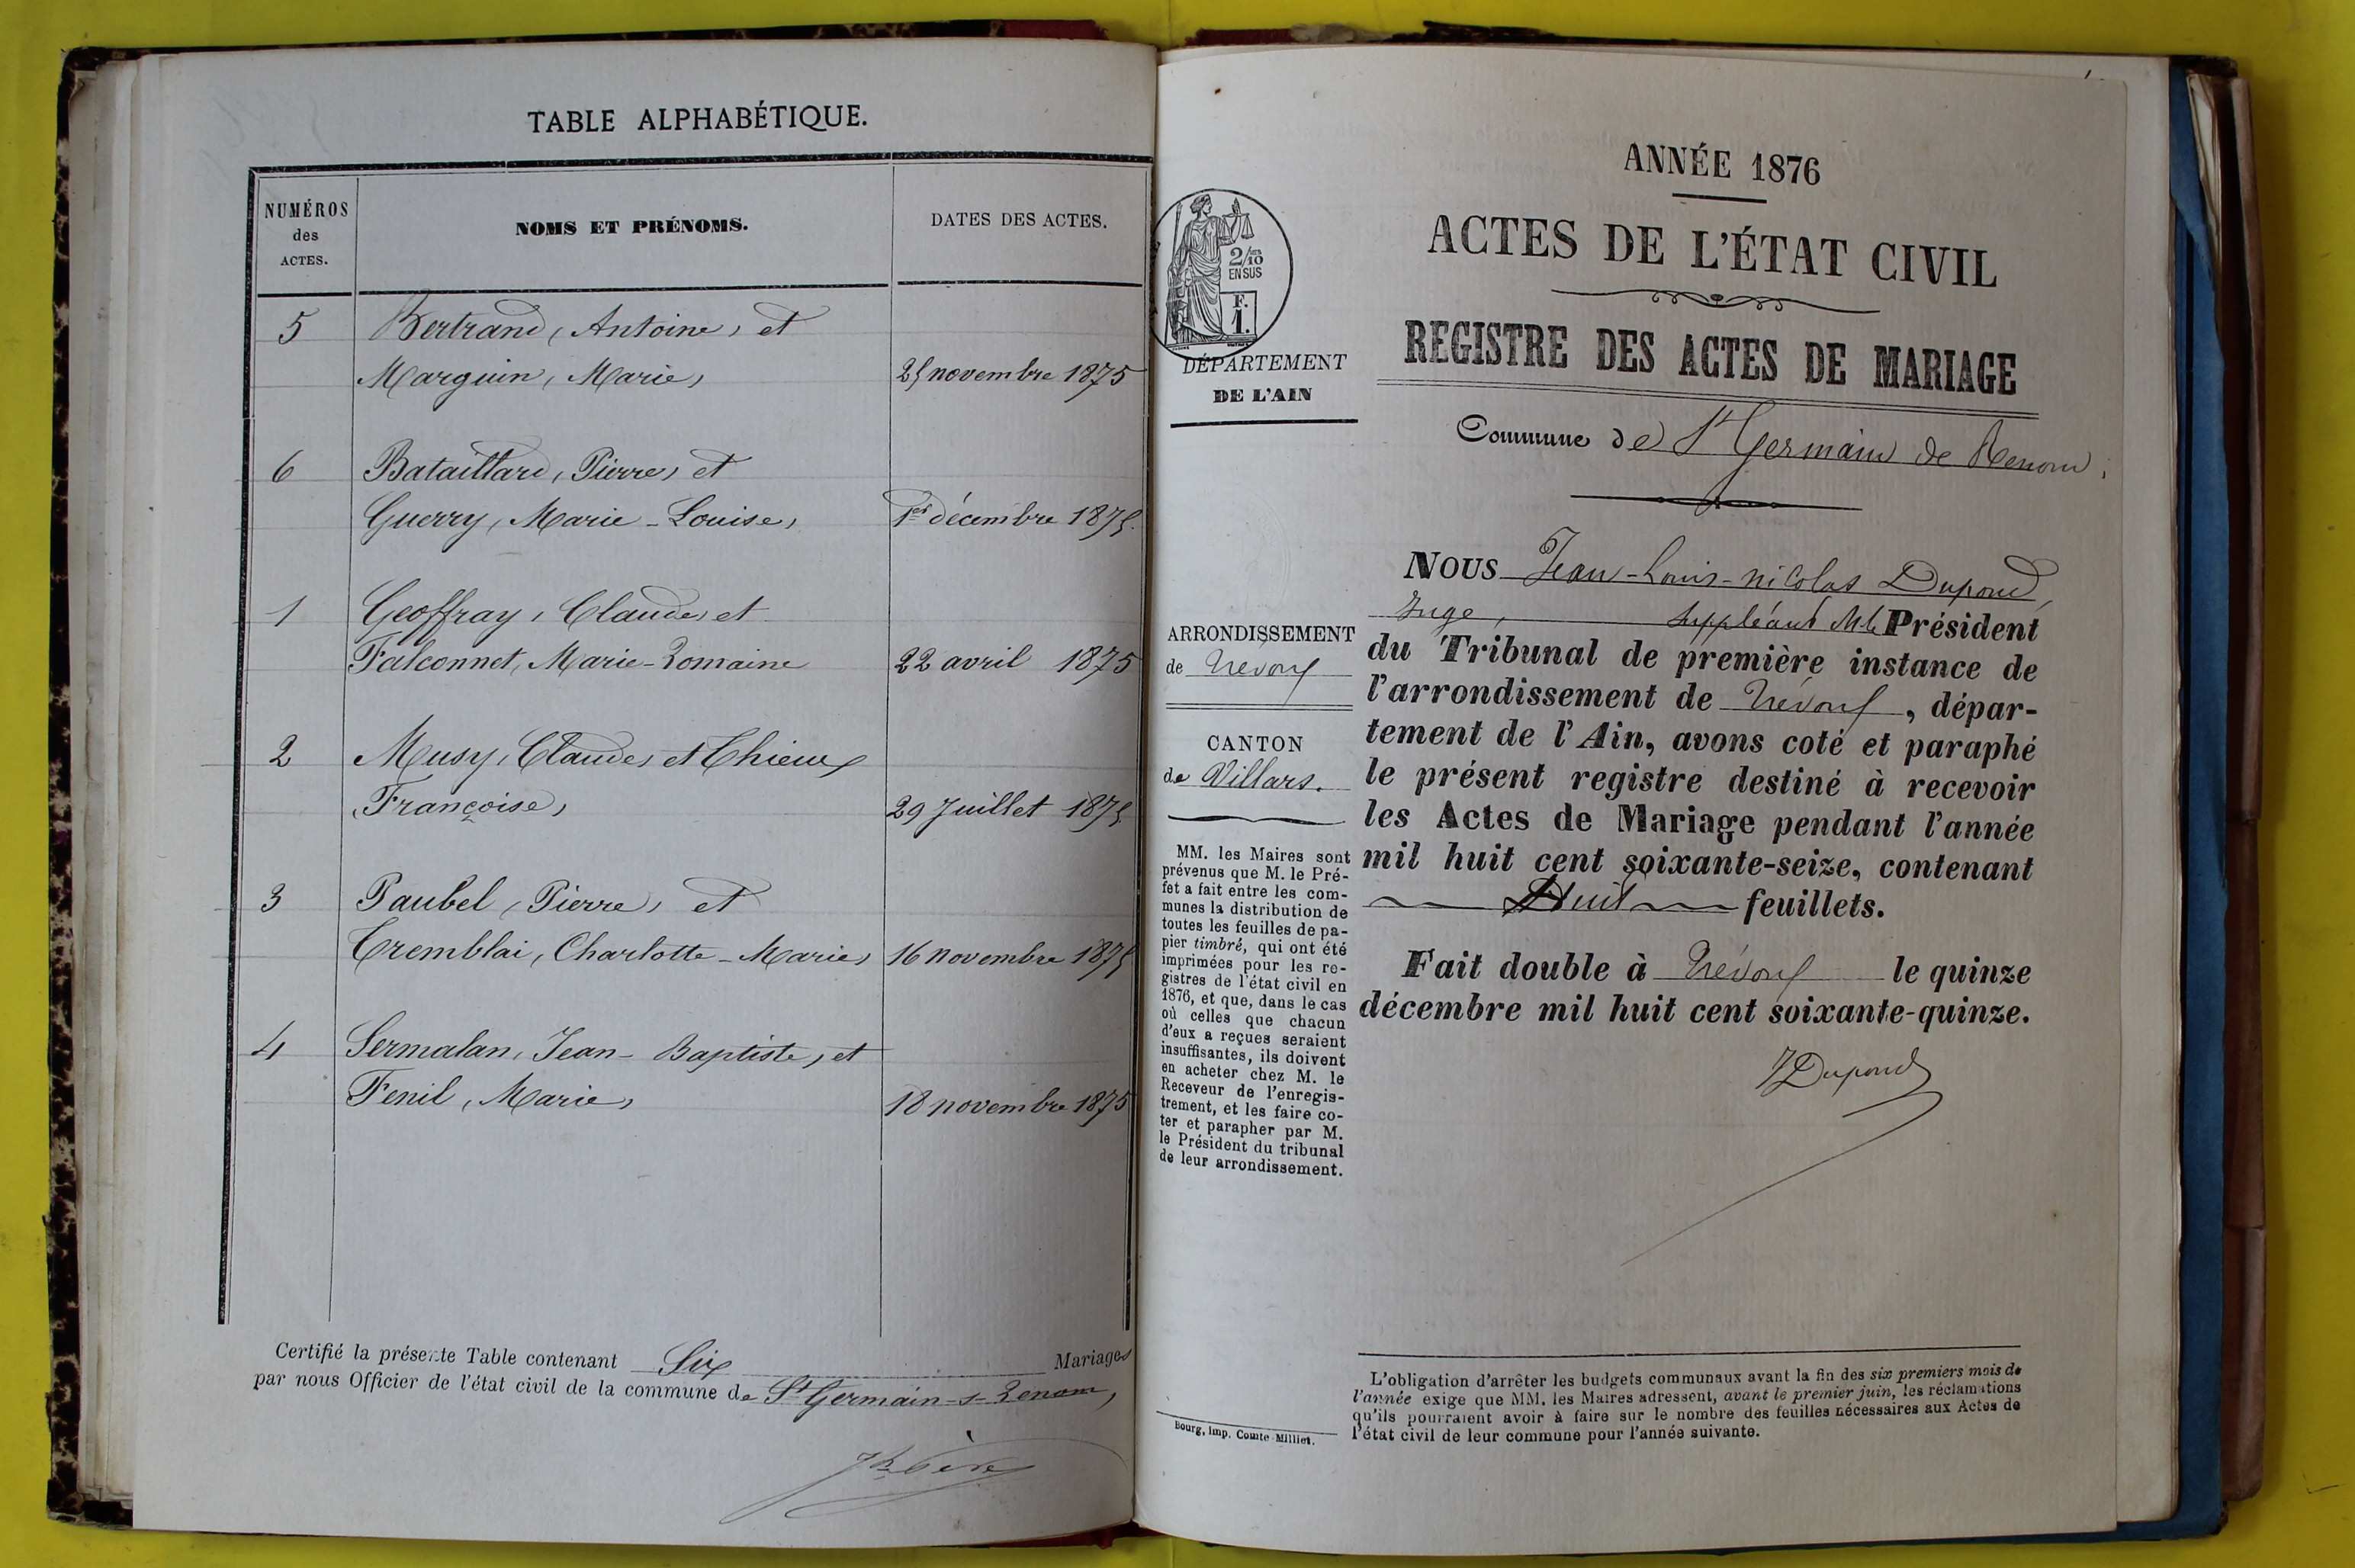 TABLE ALPHABÉTIQUE.
NUMÉROS
des
ACTES.
NOMS ET PRÉNOMS.
DATES DES ACTES.
5 Bertrand, Antoine, et
Marguin, Marie, 25 novembre 1875
6 Bataillard, Pierre, et
Guerry, Marie-Louise, 1er décembre 1875.
1 Geoffray, Claude, et
Falconnet, Marie-Romaine 22 avril 1875
2 Musy, Claude, et Chieux
Françoise, 29 Juillet 1875
3 Paubel, Pierre, et
Tremblai, Charlotte-Marie, 16 novembre 1875
4 Sermalan, Jean-Baptiste, et
Fenil, Marie, 18 novembre 1875
Certifié la présente Table contenant Six Mariages
par nous Officier de l'état civil de la commune de St Germain-s-Renom,
2/10
EN SUS
F.
1.
DÉPARTEMENT
DE L'AIN
ARRONDISSEMENT
de Trévoux
CANTON
de Villars.
MM. les Maires sont
prévenus que M. le Pré-
fet a fait entre les com-
munes la distribution de
toutes les feuilles de pa-
pier timbré, qui ont été
imprimées pour les re-
gistres de l'état civil en
1876, et que, dans le cas
où celles que chacun
d'eux a reçues seraient
insuffisantes, ils doivent
en acheter chez M. le
Receveur de l'enregis-
trement, et les faire co-
ter et parapher par M.
le Président du tribunal
de leur arrondissement.
Bourg, imp. Comte-Milliet.
ANNÉE 1876
ACTES DE L'ÉTAT CIVIL
REGISTRE DES ACTES DE MARIAGE
Commune de St Germain de Renom
NOUS Jean-Louis-nicolas Dupond,
Juge, suppléant Mr le Président
du Tribunal de première instance de
l'arrondissement de Trévoux, dépar-
tement de l'Ain, avons coté et paraphé
le présent registre destiné à recevoir
les Actes de Mariage pendant l'année
mil huit cent soixante-seize, contenant
Huit feuillets.
Fait double à Trévoux le quinze
décembre mil huit cent soixante-quinze.
JDupond
L'obligation d'arrêter les budgets communaux avant la fin des six premiers mois de
l'année exige que MM. les Maires adressent, avant le premier juin, les réclamations
qu'ils pourraient avoir à faire sur le nombre des feuilles nécessaires aux Actes de
l'état civil de leur commune pour l'année suivante.